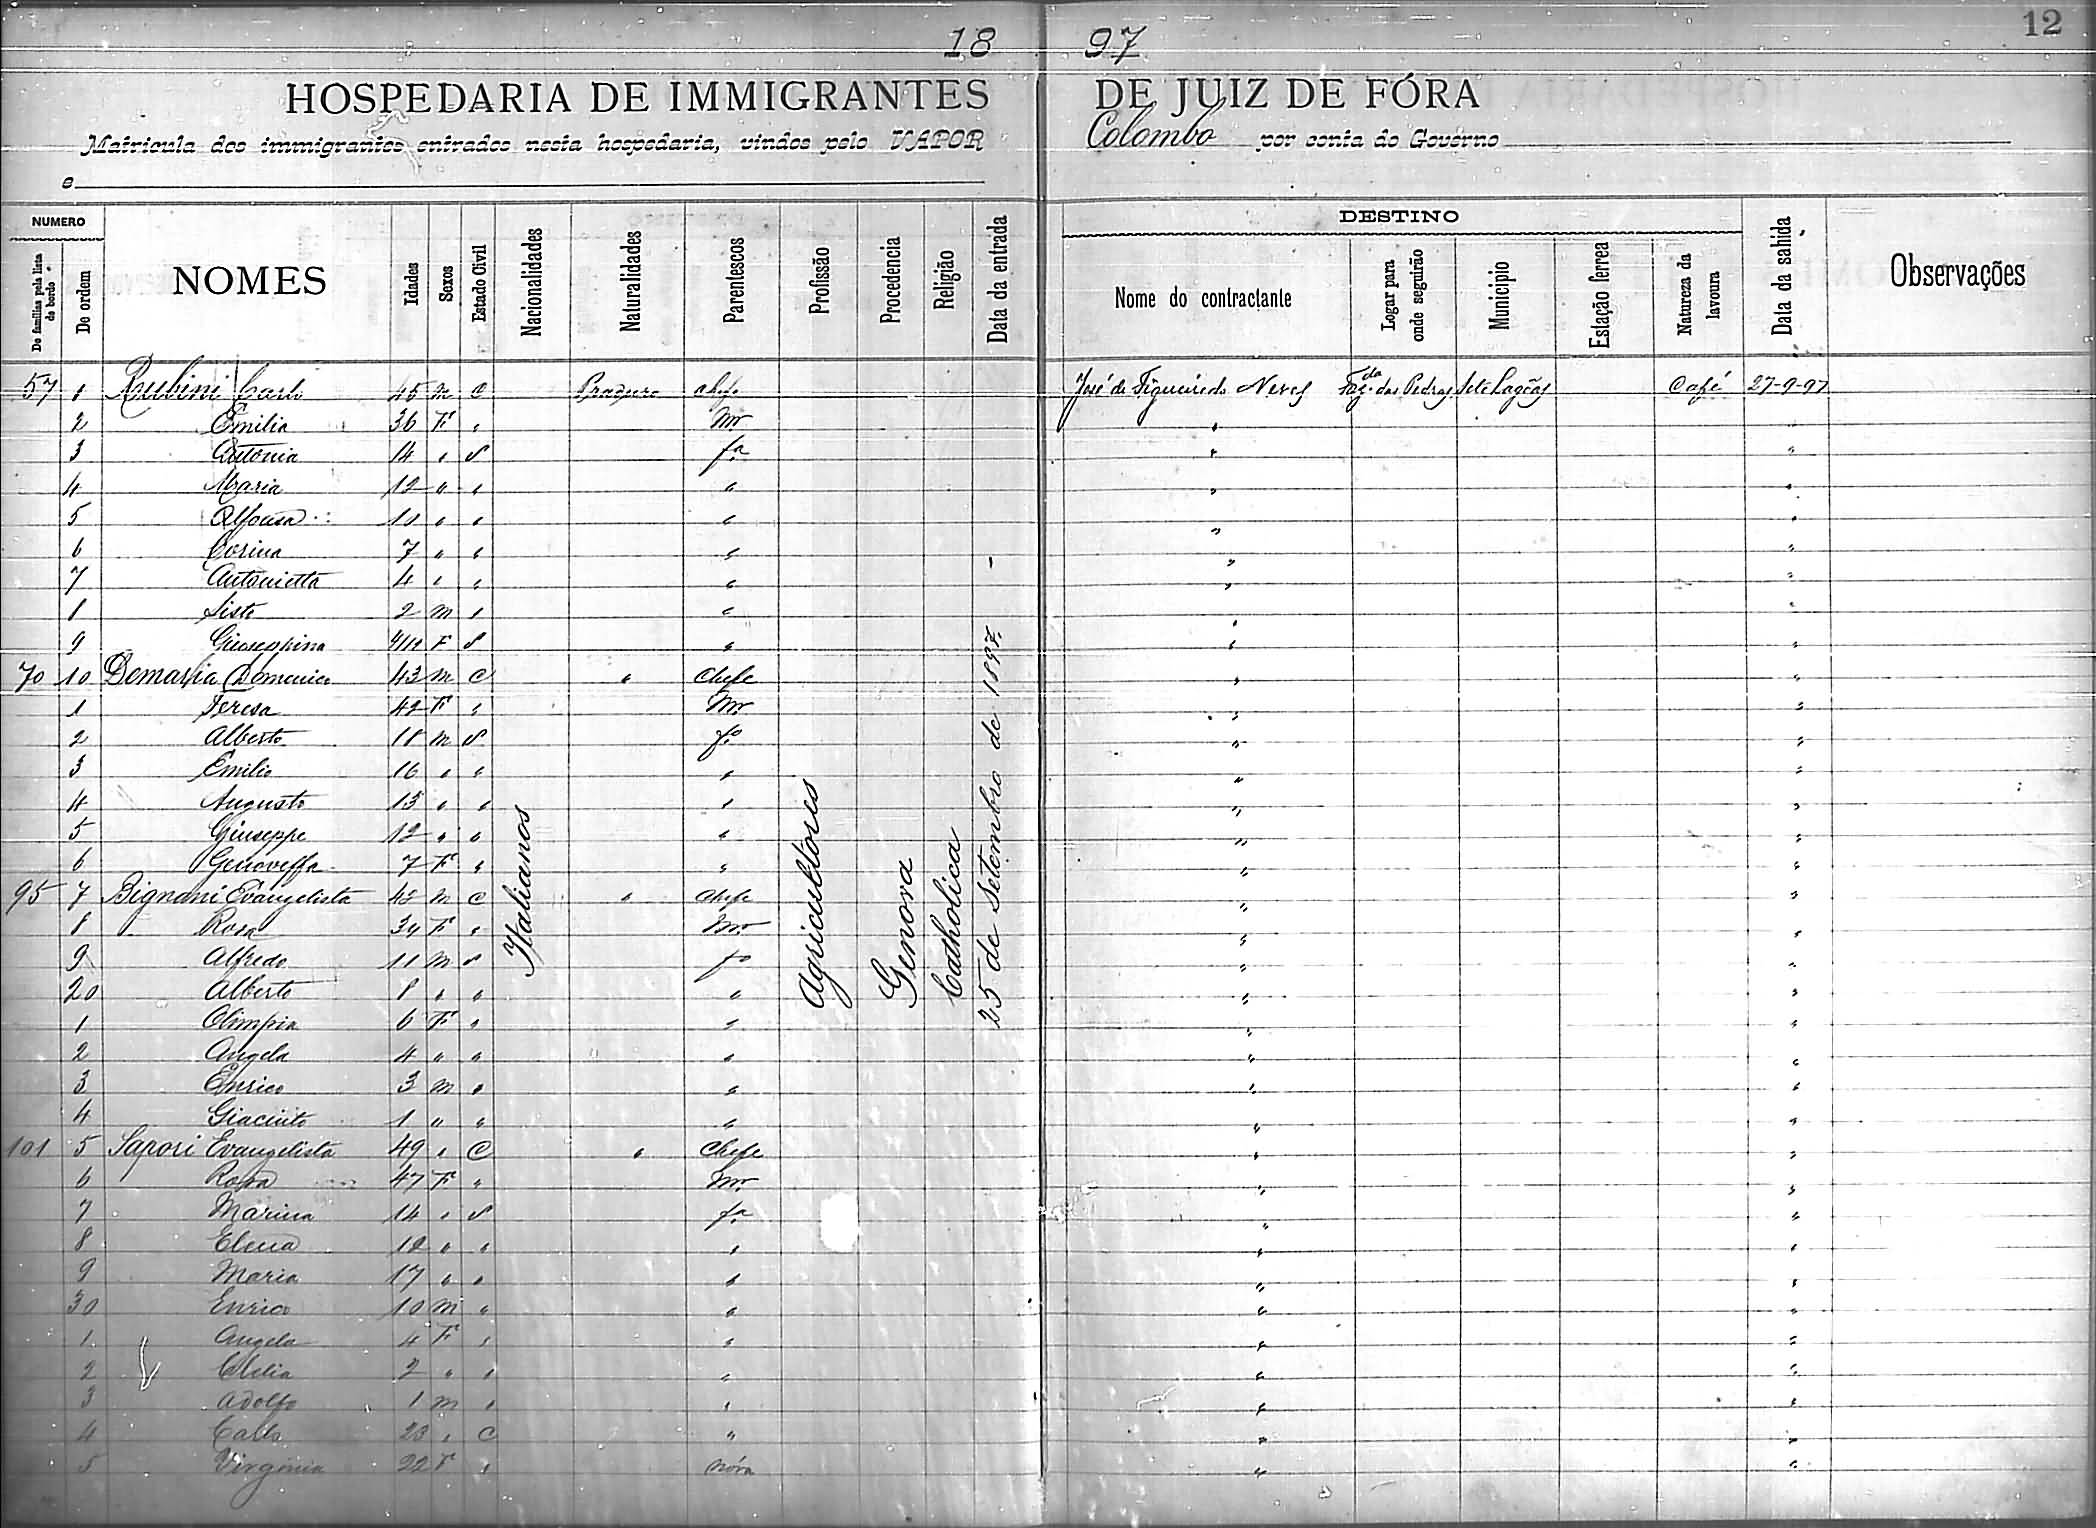 12
18 97
HOSPEDARIA DE IMMIGRANTES DE JUIZ DE FÓRA
Matricula dos immigrantes entrados nesta hospedaria, vindos pelo VAPOR Colombo por conta do Governo
e
NUMERO
De familias pela lista de bordo
De ordem
NOMES
Idades
Sexos
Estado Civil
Nacionalidades
Naturalidades
Parentescos
Profissão
Procedencia
Religião
Data da entrada
DESTINO
Nome do contractante
Logar para onde seguirão
Municipio
Estação ferrea
Natureza da lavoura
Data da sahida
Observações
57 1 Rubini Carlo 45 m C chefe José de Figueiredo Neves Fazda das Pedras Sete Lagôas Café 27-9-97
2 Emilia 36 F " Mr " "
3 Antonia 14 " S fa " "
4 Maria 12 " " " " "
5 Alfonsa 10 " " " " "
6 Corina 7 " " " " "
7 Antonietta 4 " " " " "
8 Sisto 2 m " " " "
9 Giuseppina 4/12 F S " " "
70 10 Demaria Domenico 43 m C " Chefe " "
1 Teresa 42 F " Mr " "
2 Alberto 18 m S fo " "
3 Emilio 16 " " " " "
4 Augusto 15 " " " " "
5 Giuseppe 12 " " " " "
6 Genoveffa 7 F " " " "
95 7 Bignani Evangelista 42 m C " Chefe " "
8 Rosa 34 F " Mr " "
9 Alfredo 11 m S fo " "
20 Alberto 8 " " " " "
1 Olimpia 6 F " " " "
2 Angela 4 " " " " "
3 Enrico 3 m " " " "
4 Giacinto 1 " " " " "
101 5 Sapori Evangelista 49 " C " Chefe " "
6 Rosa 47 F " Mr " "
7 Marina 14 " S fa " "
8 Elena 12 " " " " "
9 Maria 17 " " " " "
30 Enrico 10 m " " " "
1 Angela 4 F " " " "
2 Clelia 2 " " " " "
3 Adolfo 1 m " " " "
4 Carlo 23 " C " " "
5 Virginia 22 F " nóra " "
Italianos
Agricultores
Genova
Catholica
25 de Setembro de 1897.